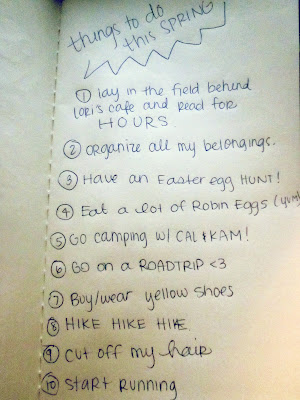 things to do
this SPRING
① lay in the field behind
LORI's cafe and Read for
HOURS
② ORGANIZE all my belongings.
③ Have an Easter egg HUNT!
④ Eat a lot of Robin Eggs (yum)
⑤ GO camping w/ CAL & KAM!
⑥ GO on a ROADTRIP <3
⑦ Buy/wear yellow shoes
⑧ HIKE HIKE HIKE.
⑨ cut off my hair
⑩ start Running